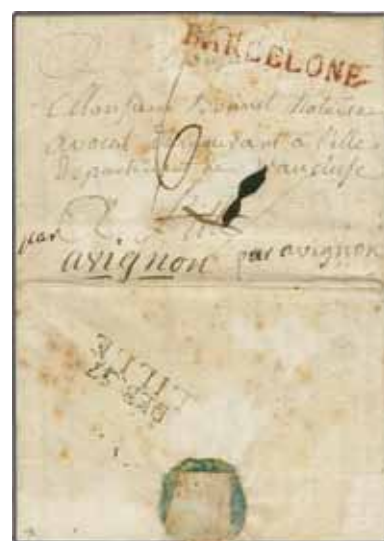 BARCELONE
Monsieur Bonnet Notaire
avocat à l'ille
Département de Vaucluse
par
avignon par avignon
DEB. 57
LILLE